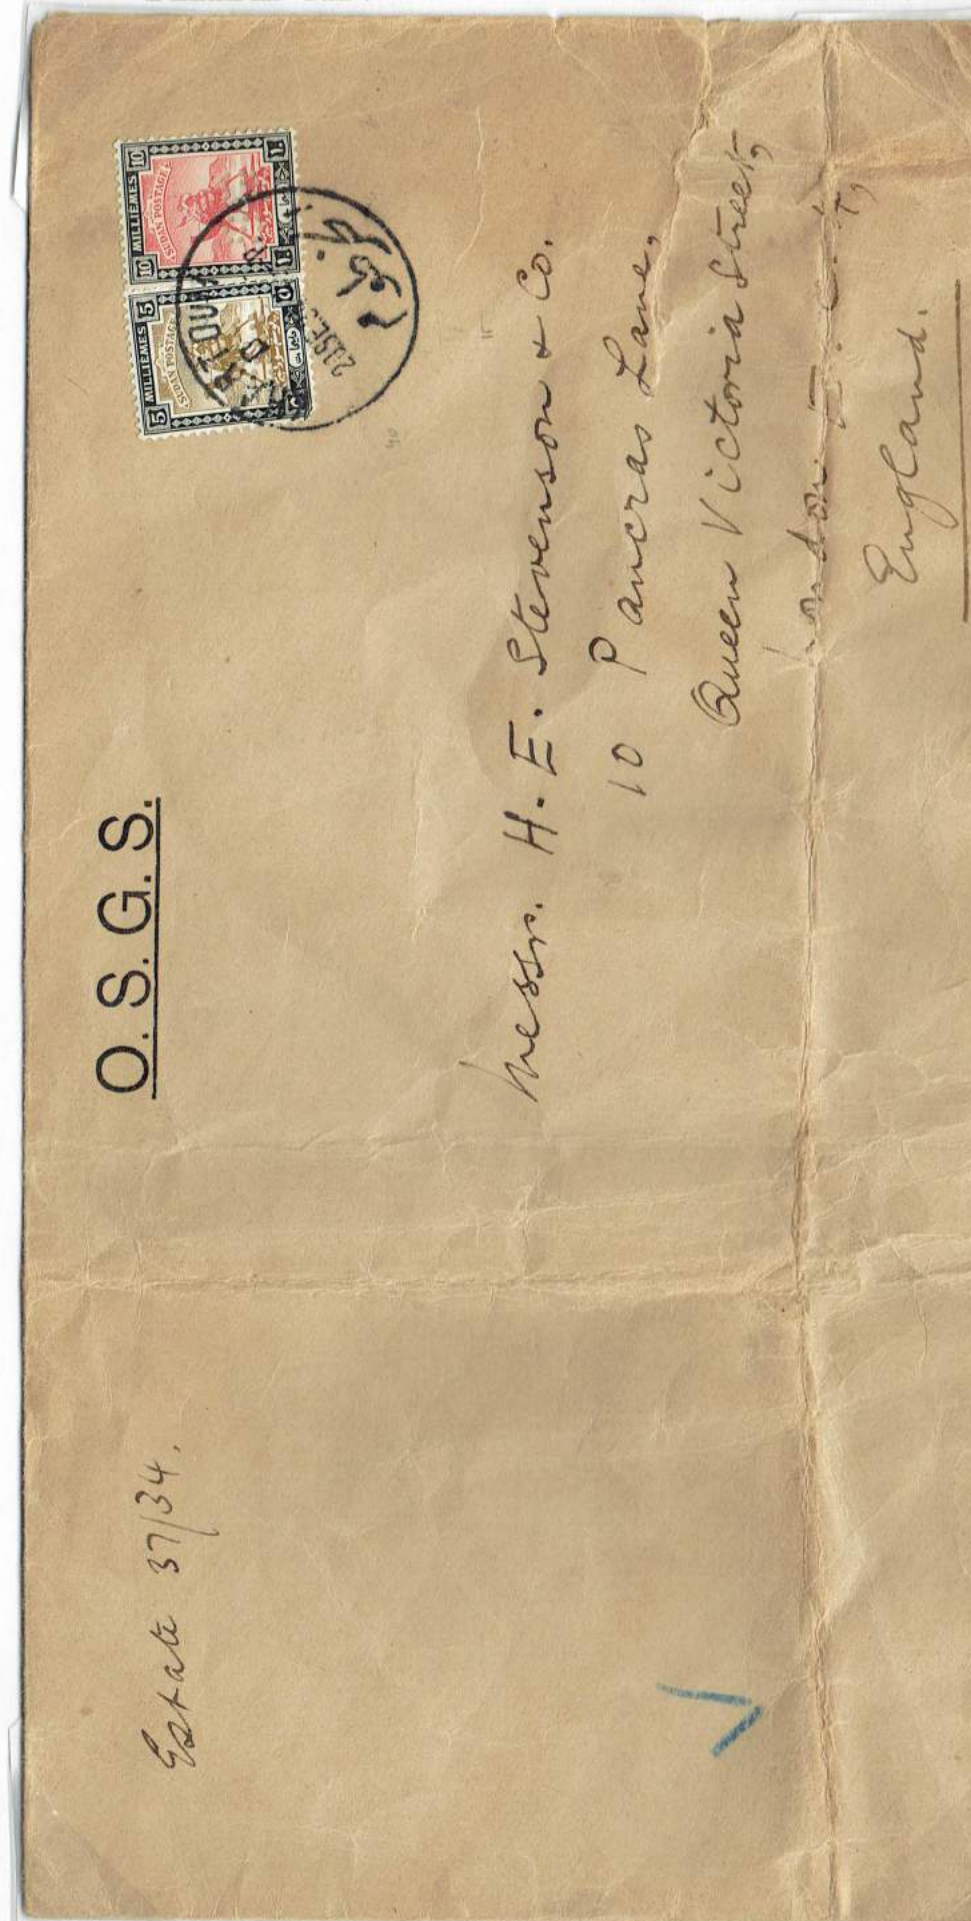 O. S. G. S.
Estate 37/34.
5 MILLIEMES 5
SUDAN POSTAGE
10 MILLIEMES 10
SUDAN POSTAGE
Messrs. H. E. Stevenson & Co.
10 Pancras Lane,
Queen Victoria Street,
London. E. C. 4,
England.